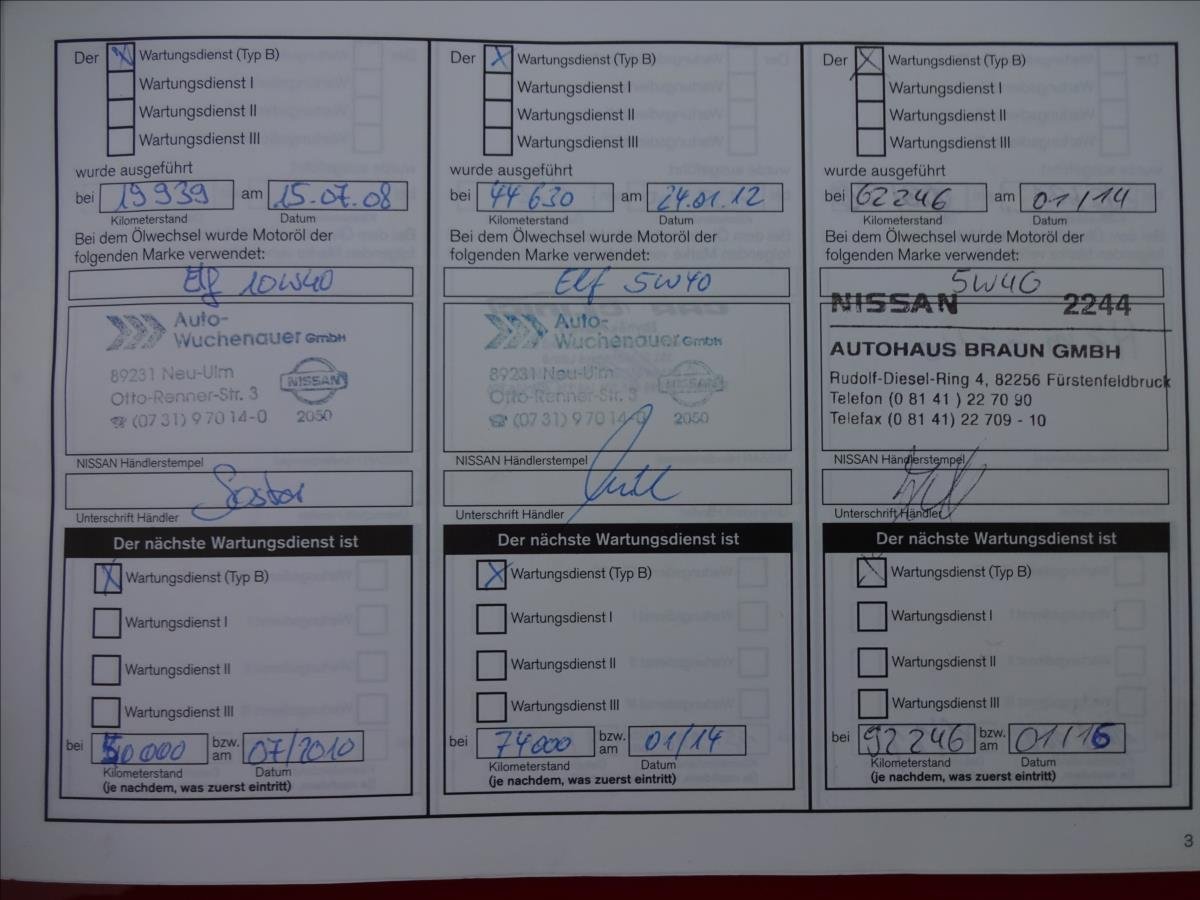 Der X Wartungsdienst (Typ B)
Wartungsdienst I
Wartungsdienst II
Wartungsdienst III
wurde ausgeführt
bei 19939 am 15.07.08
Kilometerstand Datum
Bei dem Ölwechsel wurde Motoröl der
folgenden Marke verwendet:
Elf 10W40
Auto-
Wuchenauer GmbH
89231 Neu-Ulm
Otto-Renner-Str. 3
☎ (07 31) 9 70 14-0
NISSAN
2050
NISSAN Händlerstempel
Unterschrift Händler
Der nächste Wartungsdienst ist
X Wartungsdienst (Typ B)
Wartungsdienst I
Wartungsdienst II
Wartungsdienst III
bei 50000 bzw. am 07/2010
Kilometerstand Datum
(je nachdem, was zuerst eintritt)
Der X Wartungsdienst (Typ B)
Wartungsdienst I
Wartungsdienst II
Wartungsdienst III
wurde ausgeführt
bei 44630 am 24.01.12
Kilometerstand Datum
Bei dem Ölwechsel wurde Motoröl der
folgenden Marke verwendet:
Elf 5W40
Auto-
Wuchenauer GmbH
89231 Neu-Ulm
Otto-Renner-Str. 3
☎ (07 31) 9 70 14-0
NISSAN
2050
NISSAN Händlerstempel
Unterschrift Händler
Der nächste Wartungsdienst ist
X Wartungsdienst (Typ B)
Wartungsdienst I
Wartungsdienst II
Wartungsdienst III
bei 74000 bzw. am 01/14
Kilometerstand Datum
(je nachdem, was zuerst eintritt)
Der X Wartungsdienst (Typ B)
Wartungsdienst I
Wartungsdienst II
Wartungsdienst III
wurde ausgeführt
bei 62246 am 01/14
Kilometerstand Datum
Bei dem Ölwechsel wurde Motoröl der
folgenden Marke verwendet:
5W40
NISSAN 2244
AUTOHAUS BRAUN GMBH
Rudolf-Diesel-Ring 4, 82256 Fürstenfeldbruck
Telefon (0 81 41 ) 22 70 90
Telefax (0 81 41) 22 709 - 10
NISSAN Händlerstempel
Unterschrift Händler
Der nächste Wartungsdienst ist
X Wartungsdienst (Typ B)
Wartungsdienst I
Wartungsdienst II
Wartungsdienst III
bei 92246 bzw. am 01/16
Kilometerstand Datum
(je nachdem, was zuerst eintritt)
3